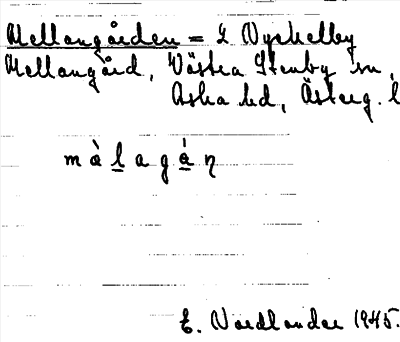 Mellangården = L Nyckelby
Mellangård, Västra Stenby sn,
Aska hd, Österg. l
m à l a g á n
E. Nordlander 1945.